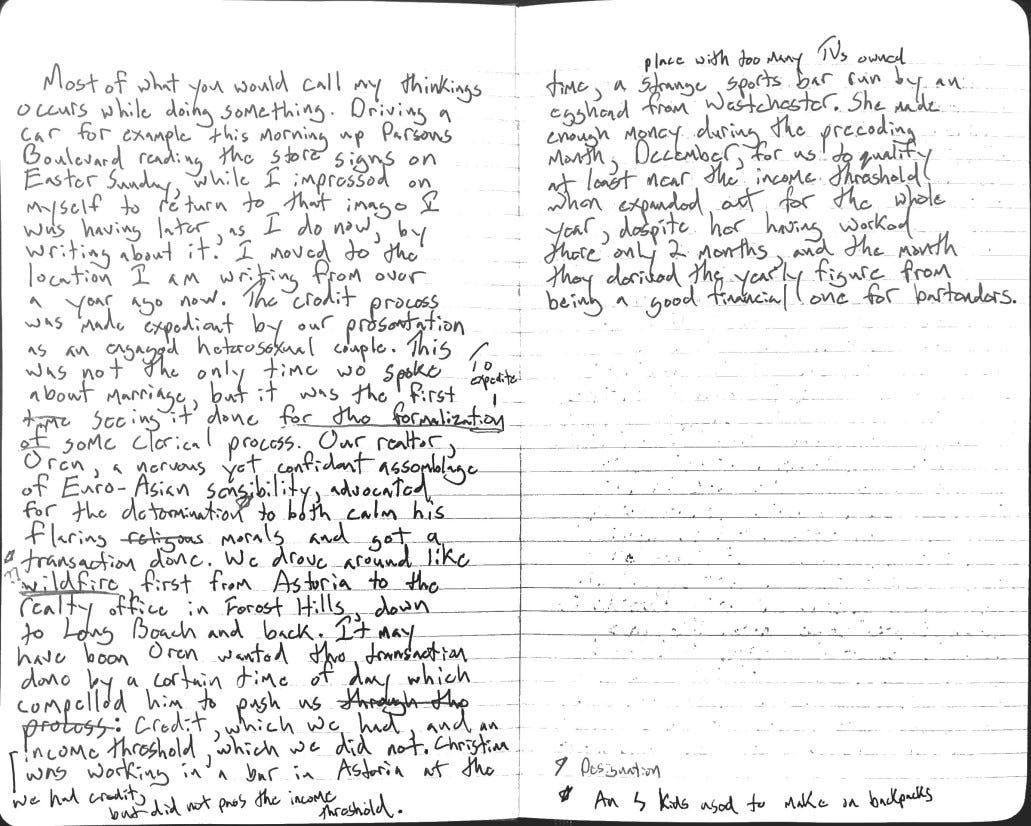 Most of what you would call my thinkings
occurs while doing something. Driving a
car for example this morning up Parsons
Boulevard reading the store signs on
Easter Sunday, while I impressed on
myself to return to that image I
was having later, as I do now, by
writing about it. I moved to the
location I am writing from over
a year ago now. The credit process
was made expedient by our presentation
as an engaged heterosexual couple. This
was not the only time we spoke
To expedite
about marriage, but it was the first
time seeing it done for the formalization
of some clerical process. Our realtor,
Oren, a nervous yet confident assemblage
of Euro-Asian sensibility, advocated
for the determination to both calm his
flaring religous morals and get a
transaction done. We drove around like
wildfire first from Astoria to the
realty office in Forest Hills, down
to Long Beach and back. It may
have been Oren wanted the transaction
done by a certain time of day which
compelled him to push us through the
process: Credit, which we had, and an
income threshold, which we did not. Christina
was working in a bar in Astoria at the
we had credit,
but did not pass the income
threshold.
place with too many TVs owned
time, a strange sports bar run by an
egghead from Westchester. She made
enough money during the preceding
month, December, for us to qualify
at least near the income threshold
when expanded out for the whole
year, despite her having worked
there only 2 months, and the month
they derived the yearly figure from
being a good financial one for bartenders.
Designation
An S kids used to make on backpacks